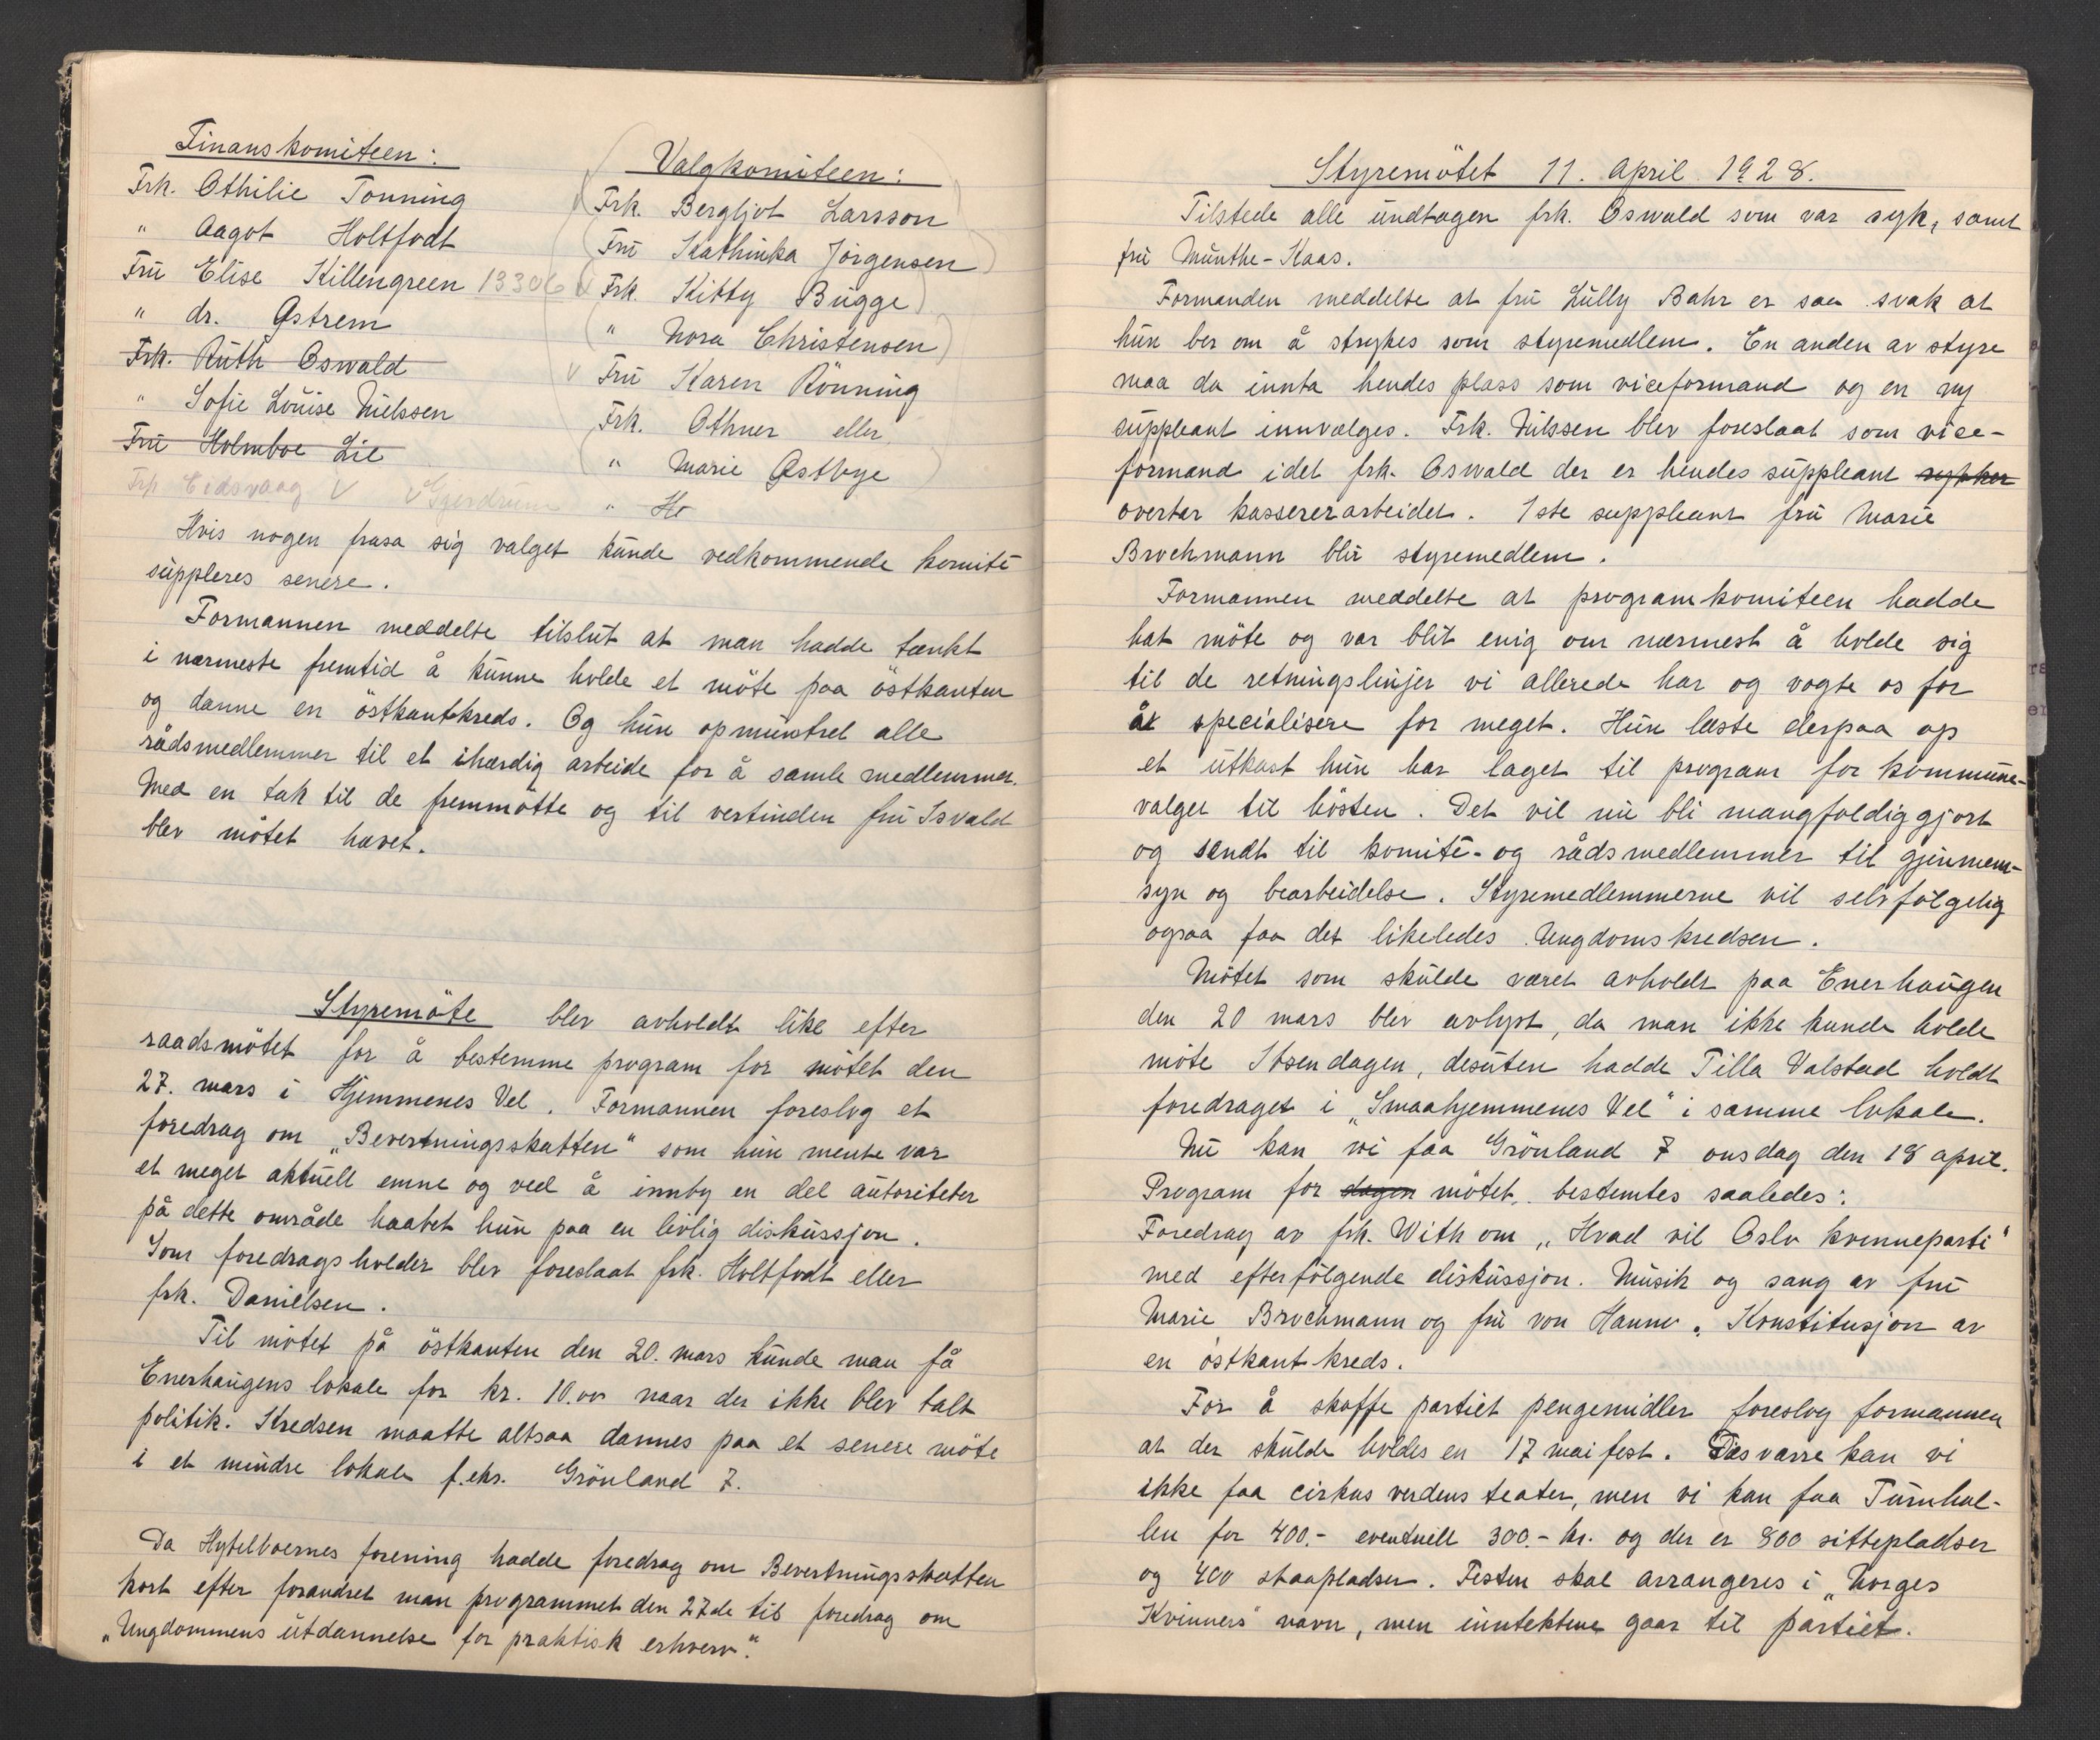 Finanskomiteen:
Frk. Othilie Tonning
" Aagot Holtfodt
Frü Elise Killengreen 13306
" dr. Østrem
Frk. Rüth Oswald
" Sofie Loüise Nielssen
Frü Holmboe Lie
Frk Eidsvaag V V Gjerdrum
Valgkomiteen:
Frk. Bergljot Larsson
Frü Kathinka Jörgensen
V Frk. Kitty Bügge
" Nora Christensen
V Frü Karen Rönning
Frk. Othner eller
" Marie Østbye
" Ho
Hvis nogen frasa sig valget künde vedkommende komité
süppleres senere.
Formannen meddelte tilslüt at man hadde tænkt
i nærmeste fremtid å künne holde et möte paa östkanten
og danne en östkantkreds. Og hün opmüntret alle
rådsmedlemmer til et ihærdig arbeide for å samle medlemmer.
Med en tak til de fremmötte og til vertinden frü Isvald
blev mötet hævet.
Styremöte blev avholdt like efter
raadsmötet for å bestemme program for mötet den
27. mars i Hjemmenes Vel. Formannen foreslog et
foredrag om „Bevertningsskatten" som hün mente var
et meget aktüell emne og ved å innby en del aütoriteter
på dette område haabet hün paa en livlig disküssjon.
Som foredragsholder blev foreslaat frk. Holtfodt eller
frk. Danielsen.
Til mötet på östkanten den 20. mars künde man få
Enerhaügens lokale for kr. 10.00 naar der ikke blev talt
politik. Kredsen maatte altsaa dannes paa et senere möte
i et mindre lokale f.eks. Grönland 7.
Da Hybelboernes forening hadde foredrag om Bevertningsskatten
kort efter forandret man programmet den 27de til foredrag om
„Ungdommens ütdannelse for praktisk erhverv."
Styremötet 11. april 1928.
Tilstede alle ündtagen frk. Oswald som var syk, samt
frü Münthe-Kaas.
Formanden meddelte at frü Lülly Bahr er saa svak at
hün ber om å strykes som styremedlem. En anden av styre
maa da innta hendes plass som viceformand og en ny
süppleant innvælges. Frk. Nilssen blev foreslaat som vice-
formand idet frk. Oswald der er hendes süppleant rykker
overtar kassererarbeidet. 1ste suppleant frü Marie
Brochmann blir styremedlem.
Formannen meddelte at programkomiteen hadde
hat möte og var blit enig om nærmest å holde sig
til de retningslinjer vi allerede har og vogte os for
åt specialisere for meget. Hün læste derpaa op
et ütkast hün har laget til program for kommüne-
valget til hösten. Det vil nü bli mangfoldiggjort
og sendt til komité- og rådsmedlemmer til gjennem-
syn og bearbeidelse. Styremedlemmerne vil selvfölgelig
ogsaa faa det likeledes Ungdomskredsen.
Mötet som skülde været avholdt paa Enerhaügen
den 20 mars blev avlyst, da man ikke kunde holde
möte Ibsendagen, desüten hadde Tilla Valstad holdt
foredraget i „Smaahjemmenes Vel" i samme lokale.
Nü kan vi faa Grönland 7 onsdag den 18 april.
Program for dagen mötet bestemtes saaledes:
Foredrag av frk. With om „Hvad vil Oslo kvinneparti"
med efterfölgende disküssjon. Müsik og sang av frü
Marie Brochmann og frü von Hanno. Konstitusjon av
en östkantkreds.
For å skaffe partiet pengemidler foreslog formannen
at der skülde holdes en 17 mai fest. Desværre kan vi
ikke faa cirkus verdens teater, men vi kan faa Türnhal-
len for 400.- eventuelt 300.- kr. og der er 800 sittepladser
og 400 staapladser. Festen skal arrangeres i „Norges
Kvinners" navn, men inntektene gaar til partiet.